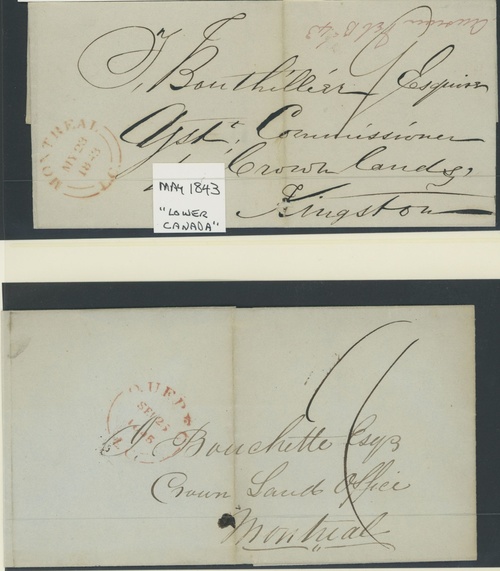 T. Bouthillier Esquire
Asst. Commissioner
Crown Lands,
Kingston
MONTREAL L.C.
MY 23
1843
MAY 1843
"LOWER
CANADA"
QUEBEC L.C.
SEP 25
J. Bouchette Esqr
Crown Lands Office
Montreal